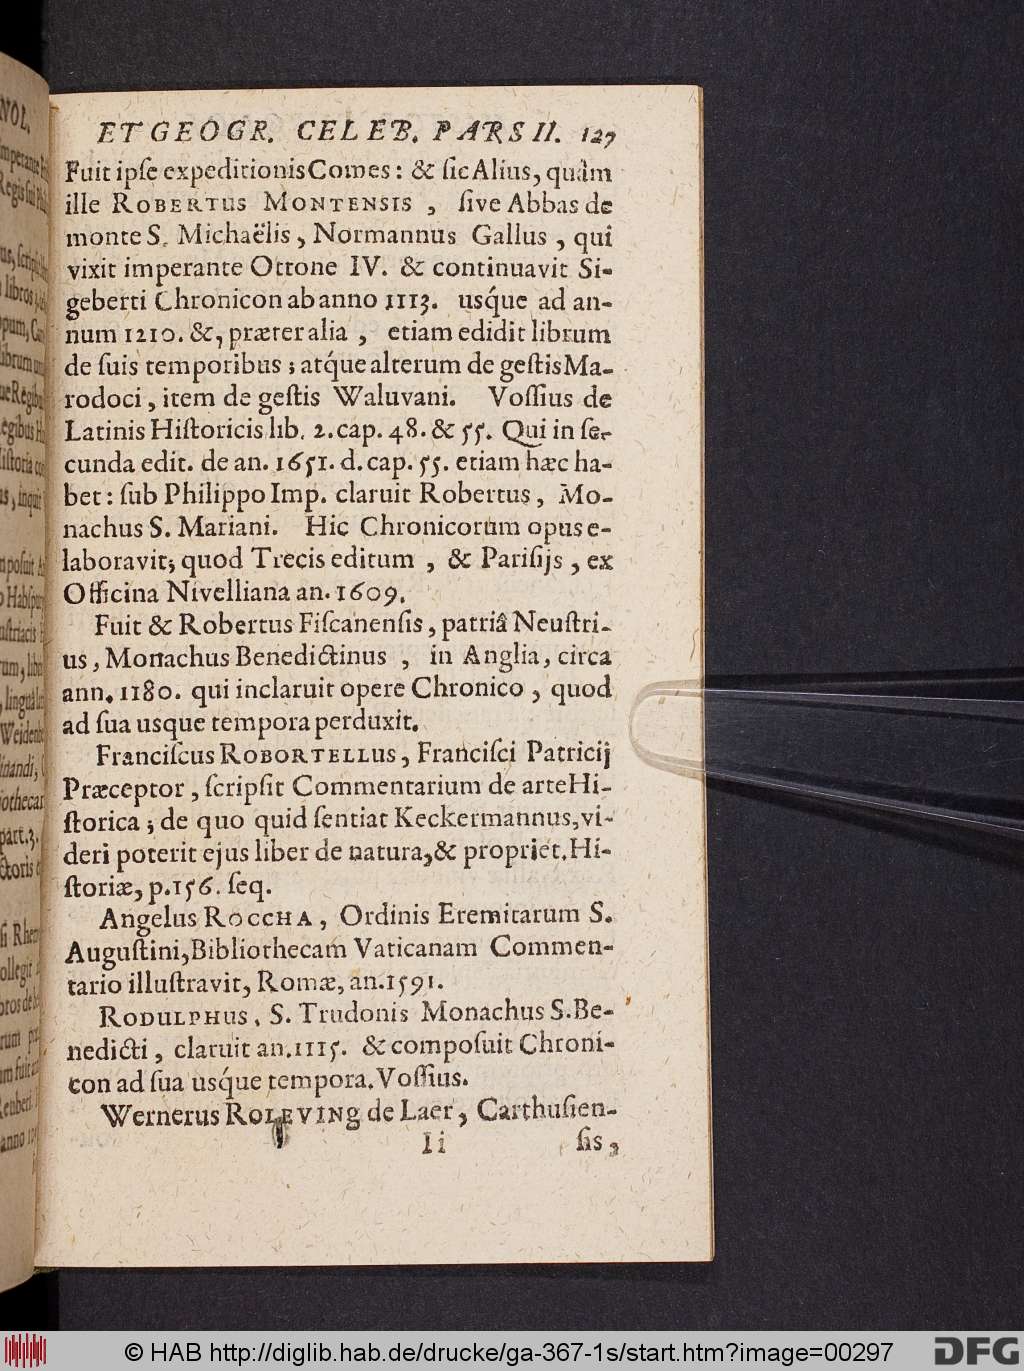 ET GEOGR. CELEB. PARS II. 127
Fuit ipſe expeditionis Comes: & ſic Alius, quàm
ille ROBERTUS MONTENSIS, ſive Abbas de
monte S. Michaëlis, Normannus Gallus, qui
vixit imperante Ottone IV. & continuavit Si-
geberti Chronicon ab anno 1113. usq́ue ad an-
num 1210. &, præter alia, etiam edidit librum
de ſuis temporibus; atq́ue alterum de geſtis Ma-
rodoci, item de geſtis Waluvani. Voſſius de
Latinis Hiſtoricis lib. 2. cap. 48. & 55. Qui in ſe-
cunda edit. de an. 1651. d. cap. 55. etiam hæc ha-
bet: ſub Philippo Imp. claruit Robertus, Mo-
nachus S. Mariani. Hic Chronicorum opus e-
laboravit; quod Trecis editum, & Pariſijs, ex
Officina Nivelliana an. 1609.
Fuit & Robertus Fiſcanenſis, patriâ Neuſtri-
us, Monachus Benedictinus, in Anglia, circa
ann. 1180. qui inclaruit opere Chronico, quod
ad ſua usque tempora perduxit.
Franciſcus ROBORTELLus, Franciſci Patricij
Præceptor, ſcripſit Commentarium de arte Hi-
ſtorica; de quo quid ſentiat Keckermannus, vi-
deri poterit ejus liber de natura, & propriet. Hi-
ſtoriæ, p. 156. ſeq.
Angelus ROCCHA, Ordinis Eremitarum S.
Auguſtini, Bibliothecam Vaticanam Commen-
tario illuſtravit, Romæ, an. 1591.
RODULPHus, S. Trudonis Monachus S. Be-
nedicti, claruit an. 1115. & compoſuit Chroni-
con ad ſua usq́ue tempora. Voſſius.
Wernerus ROLEVINg de Laer, Carthuſien-
Ii ſis,
© HAB http://diglib.hab.de/drucke/ga-367-1s/start.htm?image=00297
DFG